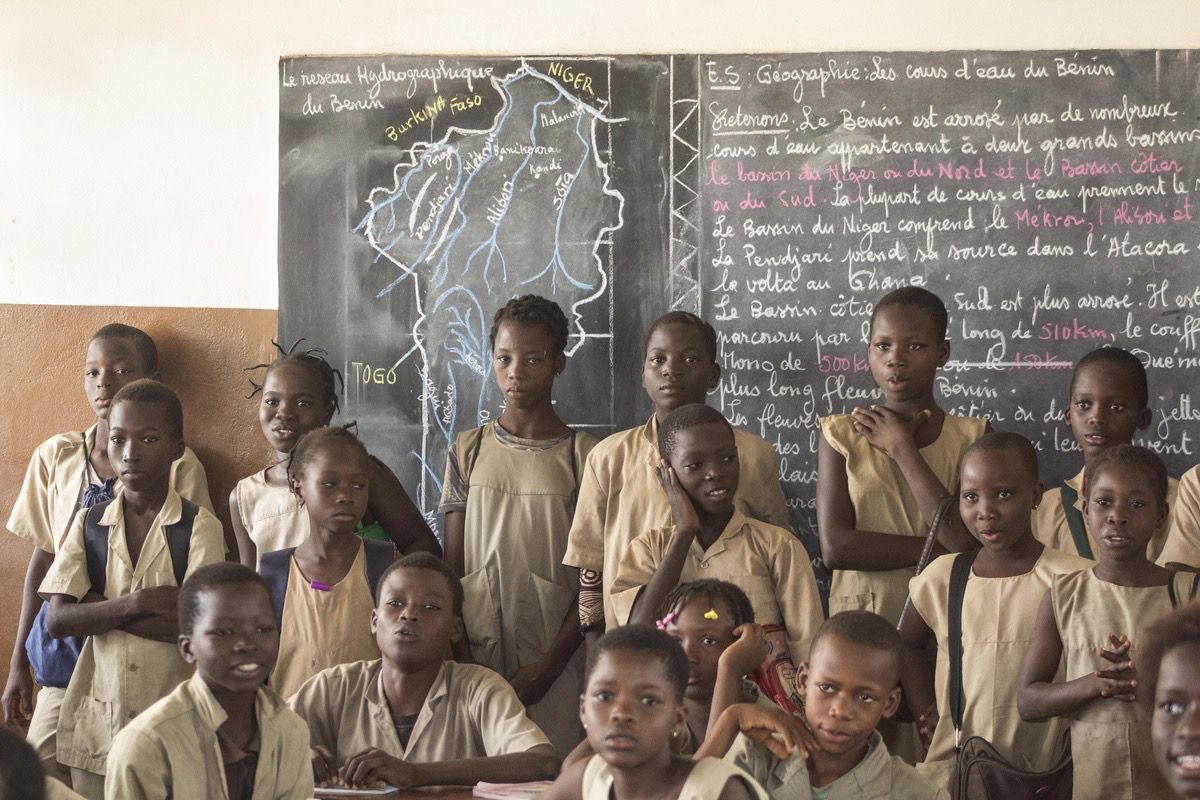 Le reseau Hydrographique
du Bénin
NIGER
BurkinA FAso
Malanville
Porga
Mékrou
Banikoara
Kandi
Pendjari
Alibori
Sota
TOGO
E.S : Géographie : Les cours d'eau du Bénin
Retenons : Le Bénin est arrosé par de nombreux
cours d'eau appartenant à deux grands bassins
le bassin du Niger ou du Nord et le Bassin côtier
ou du Sud. La plupart de cours d'eau prennent le
Le Bassin du Niger comprend le Mékrou, l'Alibori et
La Pendjari prend sa source dans l'Atacora
la volta au Ghana.
Le Bassin Sud est plus arrosé. Il es
parcouru par l long de 510 km, le couff
Mono de 500k ou de 150 km
plus long fleuve Bénin.
Les fleuve ou du